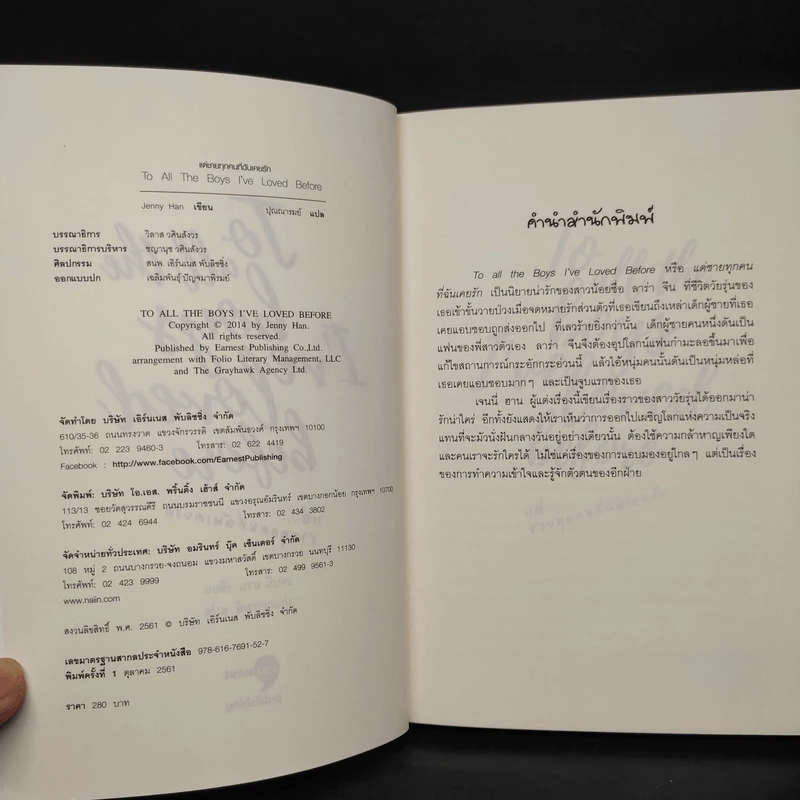 แด่ชายทุกคนที่ฉันเคยรัก
To All The Boys I've Loved Before
Jenny Han เขียน ปุณณารมย์ แปล
บรรณาธิการ วิลาส วศินสังวร
บรรณาธิการบริหาร ชญานุช วศินสังวร
ศิลปกรรม สนพ. เอิร์นเนส พับลิชชิ่ง
ออกแบบปก เฉลิมพันธุ์ ปัญจมาพิรมย์
TO ALL THE BOYS I'VE LOVED BEFORE
Copyright © 2014 by Jenny Han.
All rights reserved.
Published by Earnest Publishing Co.,Ltd.
arrangement with Folio Literary Management, LLC
and The Grayhawk Agency Ltd.
จัดทำโดย บริษัท เอิร์นเนส พับลิชชิ่ง จำกัด
610/35-36 ถนนทรงวาด แขวงจักรวรรดิ เขตสัมพันธวงศ์ กรุงเทพฯ 10100
โทรศัพท์: 02 223 9460-3 โทรสาร: 02 622 4419
Facebook : http://www.facebook.com/EarnestPublishing
จัดพิมพ์: บริษัท โอ.เอส. พริ้นติ้ง เฮ้าส์ จำกัด
113/13 ซอยวัดสุวรรณคีรี ถนนบรมราชชนนี แขวงอรุณอัมรินทร์ เขตบางกอกน้อย กรุงเทพฯ 10700
โทรศัพท์: 02 424 6944 โทรสาร: 02 434 3802
จัดจำหน่ายทั่วประเทศ: บริษัท อมรินทร์ บุ๊ค เซ็นเตอร์ จำกัด
108 หมู่ 2 ถนนบางกรวย-จงถนอม แขวงมหาสวัสดิ์ เขตบางกรวย นนทบุรี 11130
โทรศัพท์: 02 423 9999 โทรสาร: 02 499 9561-3
www.naiin.com
สงวนลิขสิทธิ์ พ.ศ. 2561 © บริษัท เอิร์นเนส พับลิชชิ่ง จำกัด
เลขมาตรฐานสากลประจำหนังสือ 978-616-7691-52-7
พิมพ์ครั้งที่ 1 ตุลาคม 2561
ราคา 280 บาท
คำนำสำนักพิมพ์
To all the Boys I've Loved Before หรือ แด่ชายทุกคน
ที่ฉันเคยรัก เป็นนิยายน่ารักของสาวน้อยชื่อ ลาร่า จีน ที่ชีวิตวัยรุ่นของ
เธอเข้าขั้นวายป่วงเมื่อจดหมายรักส่วนตัวที่เธอเขียนถึงเหล่าเด็กผู้ชายที่เธอ
เคยแอบชอบถูกส่งออกไป ที่เลวร้ายยิ่งกว่านั้น เด็กผู้ชายคนหนึ่งดันเป็น
แฟนของพี่สาวตัวเอง ลาร่า จีนจึงต้องอุปโลกน์แฟนกำมะลอขึ้นมาเพื่อ
แก้ไขสถานการณ์กระอักกระอ่วนนี้ แล้วไอ้หนุ่มคนนั้นดันเป็นหนุ่มหล่อที่
เธอเคยแอบชอบมากๆ และเป็นจูบแรกของเธอ
เจนนี่ ฮาน ผู้แต่งเรื่องนี้เขียนเรื่องราวของสาววัยรุ่นได้ออกมาน่า
รักน่าใคร่ อีกทั้งยังแสดงให้เราเห็นว่าการออกไปเผชิญโลกแห่งความเป็นจริง
แทนที่จะมัวนั่งฝันกลางวันอยู่อย่างเดียวนั้น ต้องใช้ความกล้าหาญเพียงใด
และคนเราจะรักใครได้ ไม่ใช่แค่เรื่องของการแอบมองอยู่ไกลๆ แต่เป็นเรื่อง
ของการทำความเข้าใจและรู้จักตัวตนของอีกฝ่าย